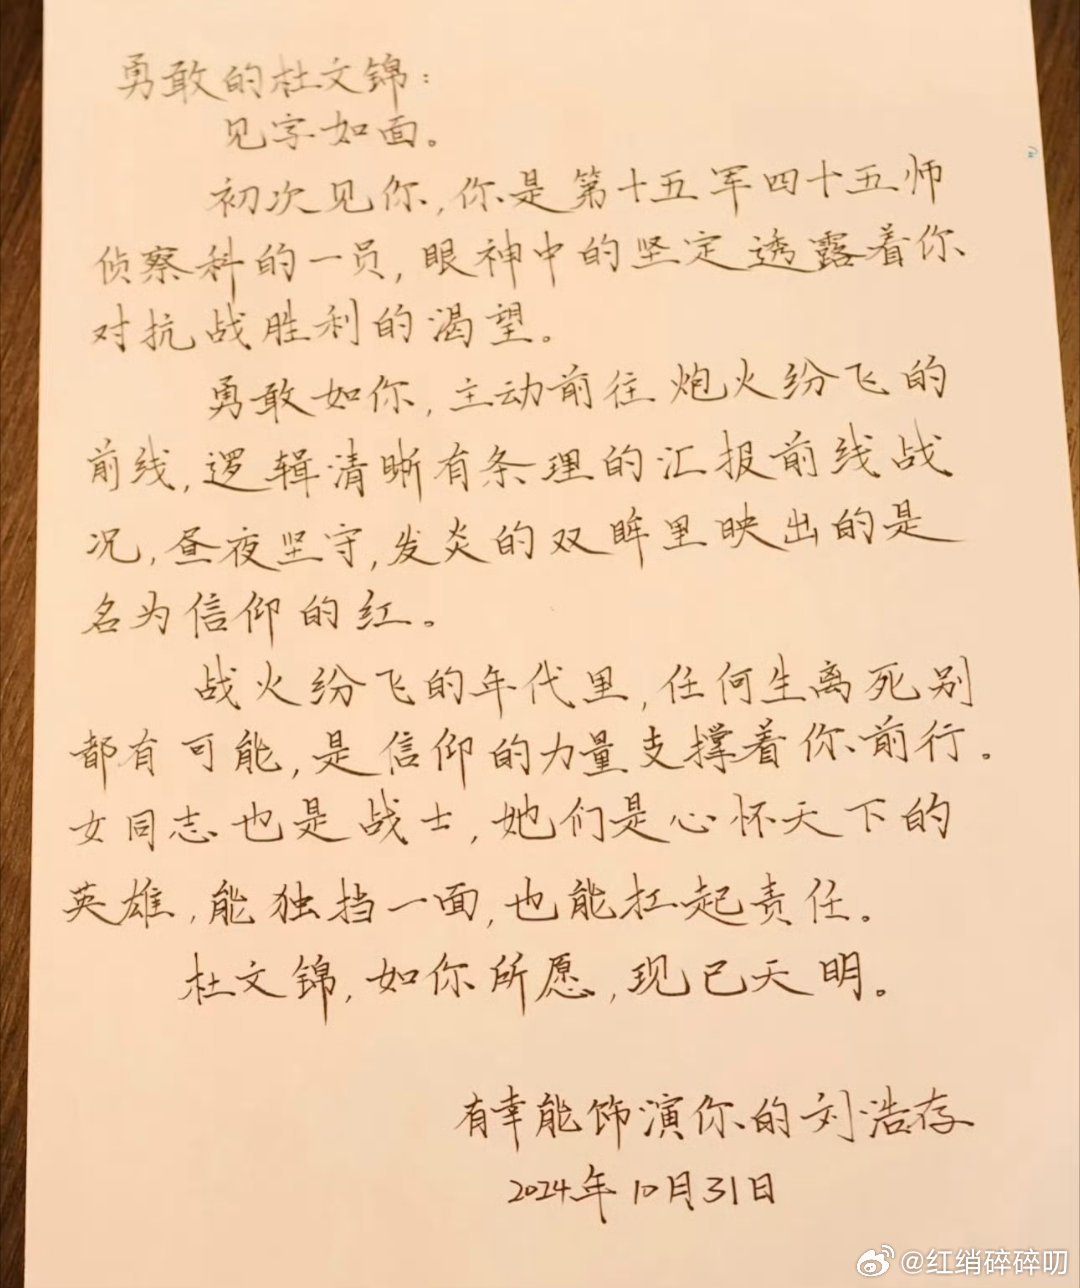 勇敢的杜文锦：
见字如面。
初次见你，你是第十五军四十五师
侦察科的一员，眼神中的坚定透露着你
对抗战胜利的渴望。
勇敢如你，主动前往炮火纷飞的
前线，逻辑清晰有条理的汇报前线战
况，昼夜坚守，发炎的双眸里映出的是
名为信仰的红。
战火纷飞的年代里，任何生离死别
都有可能，是信仰的力量支撑着你前行。
女同志也是战士，她们是心怀天下的
英雄，能独挡一面，也能扛起责任。
杜文锦，如你所愿，现已天明。
有幸能饰演你的刘浩存
2024年10月31日
@红绡碎碎叨